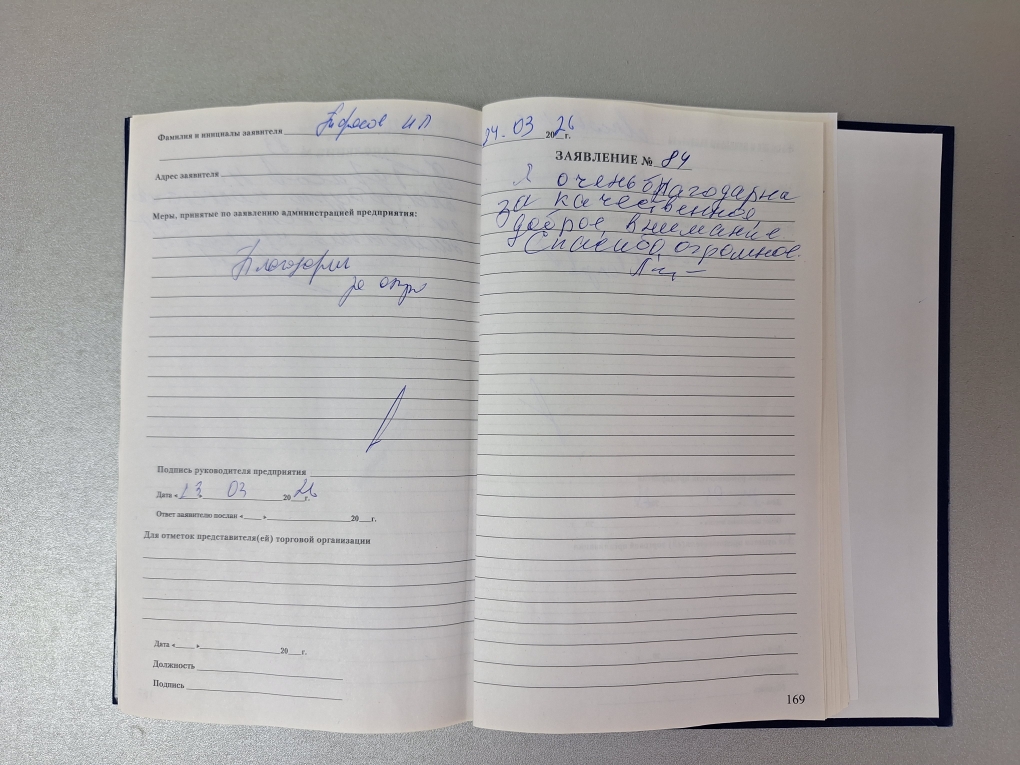 Фамилия и инициалы заявителя И П
Адрес заявителя
Меры, принятые по заявлению администрацией предприятия:
Благодарим
за
Подпись руководителя предприятия
Дата «23» 03 2026 г.
Ответ заявителю послан «___» 20___г.
Для отметок представителя(ей) торговой организации
Дата «___» 20___г.
Должность
Подпись
24. 03 2026 г.
ЗАЯВЛЕНИЕ № 84
Я очень благодарна
за качественное,
доброе внимание
Спасибо огромное.
169